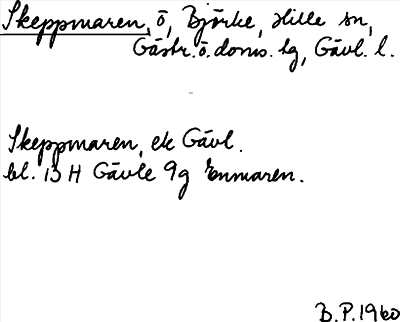 Skeppmaren, ö, Björke, Hille sn,
Gästr. ö. doms. tg, Gävl. l.
Skeppmaren, ek Gävl.
bl. 13 H Gävle 9g Enmaren.
B.P. 1960